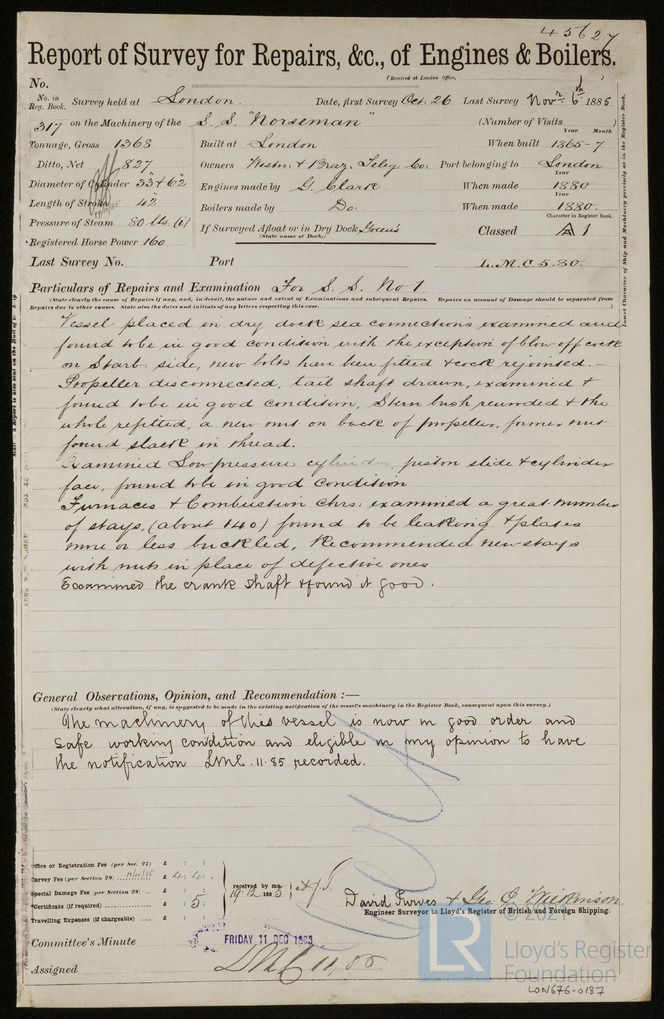 45627
Report of Survey for Repairs, &c., of Engines & Boilers.
(Received at London Office,
No.
No. in Reg. Book. Survey held at London. Date, first Survey Oct. 26 Last Survey Novr. 6th 1885
317 on the Machinery of the S. S. "Norseman" (Number of Visits )
Tonnage, Gross 1363 Built at London When built Year Month 1865-7
Ditto, Net 827 Owners Westn. & Braz. Teleg. Co. Port belonging to London
Diameter of Cylinder 33 & 62 Engines made by G. Clark When made Year 1880
Length of Stroke 42 Boilers made by Do. When made Year 1880
Pressure of Steam 80 lbs. If Surveyed Afloat or in Dry Dock Green's Classed Character in Register Book. A 1
(State name of Dock.)
Registered Horse Power 160
Last Survey No. Port L.M.C. 5.80.
Particulars of Repairs and Examination For S. S. No 1
(State clearly the cause of Repairs if any, and, in detail, the nature and extent of Examinations and subsequent Repairs. Repairs on account of Damage should be separated from
Repairs due to other causes. State also the dates and initials of any letters respecting this case.)
Vessel placed in dry dock sea connections examined and
found to be in good condition with the exception of blow off cock
on Starb. side, new bolts have been fitted & cock rejointed. -
Propeller disconnected, tail shaft drawn, examined &
found to be in good condition, Stern bush rewooded & the
whole refitted, a new nut on back of propeller, former nut
found slack in thread.
Examined Low pressure cylinder, piston slide & cylinder
face, found to be in good condition
Furnaces & Combustion Chrs. examined a great number
of stays, (about 140) found to be leaking & plates
more or less buckled, Recommended new stays
with nuts in place of defective ones
Examined the crank shaft & found it good.
General Observations, Opinion, and Recommendation :—
(State clearly what alteration, if any, is suggested to be made in the existing notification of the vessel's machinery in the Register Book, consequent upon this survey.)
The machinery of this vessel is now in good order and
safe working condition and eligible in my opinion to have
the notification LMC. 11.85 recorded.
Office or Registration Fee (per Sec. 27) £ : :
Survey Fee (per Section 28) £ 4 : 4 :
Special Damage Fee (per Section 28) £ : :
Certificate (if required) £ : 5 :
Travelling Expenses (if chargeable) £ : :
received by me,
19.12.1885
David Purves & Geo. C. Wilkinson
Engineer Surveyor to Lloyd's Register of British and Foreign Shipping.
Committee's Minute FRIDAY 11 DEC 1885
Assigned LMC 11,85
© 2021
LR
Lloyd's Register
Foundation
LON676-0187